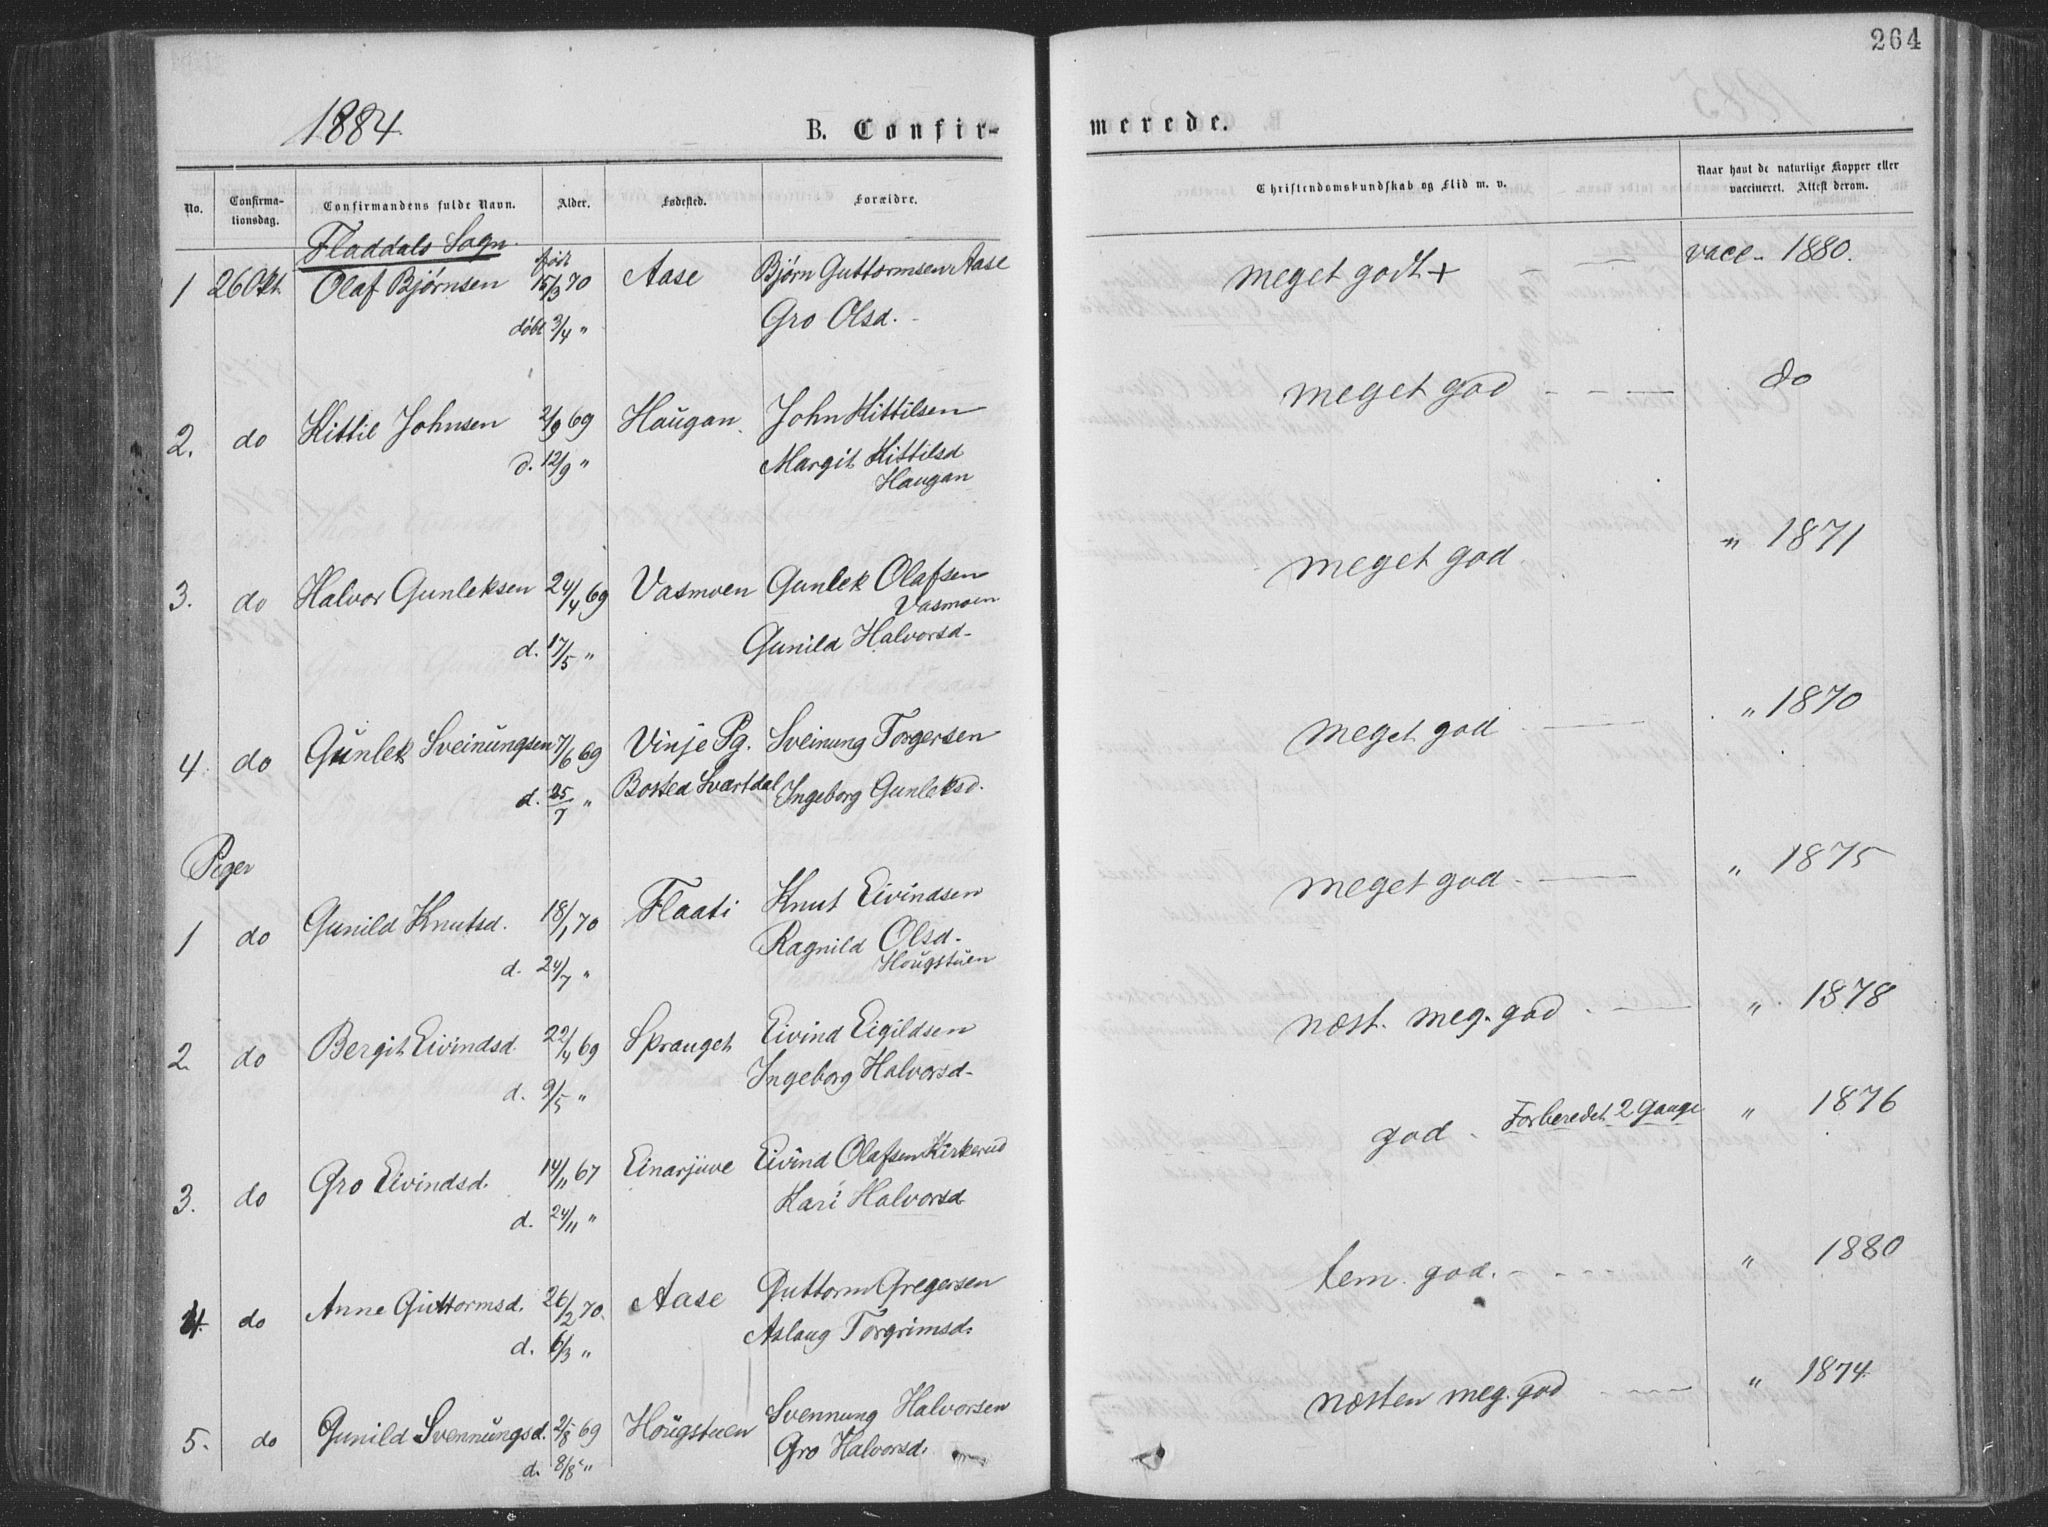 264
1884
B. Confir-
merede.
No.
Confirma-
tionsdag.
Confirmandens fulde Navn.
Alder.
Fødested.
Forældre.
Christendomskundskab og Flid m. v.
Naar havt de naturlige Kopper eller
vaccineret. Attest derom.
Fladdals Sogn.
født
1 26 Okt. Olaf Bjørnsen 15/3 70 Aase Bjørn Guttormsen Aase meget godt + — — vacc. 1880.
døbt 3/4 " Gro Olsd.
2. do Kittil Johnsen 2/9 69 Haugan John Kittilsen meget god - - — do
d. 12/9 " Margit Kittilsd
Haugan
3. do Halvor Gunleksen 24/4 69 Vasmoen Gunlek Olafsen meget god " 1871
Vasmoen
d. 17/5 " Gunild Halvorsd.
4 do Gunlek Sveinungsen 7/6 69 Vinje Pg. Sveinung Torgersen meget god — " 1870
d. 25/7 " Bosted Svartdal Ingeborg Gunleksd.
Piger
1 do Gunild Knutsd. 18/1 70 Flaati Knut Eivindsen meget god - — " 1875
d. 24/7 " Ragnild Olsd.
Hougstuen
2. do Bergit Eivindsd. 22/4 69 Sprauget Eivind Eigildsen næst. meg. god - — " 1878
d. 9/5 " Ingeborg Halvorsd.
3. do Gro Eivindsd. 14/11 67 Einarjuve Eivind Olafsen Kirkerud god. Forberedet 2 Gange " 1876
d. 24/11 " Kari Halvorsd
4. do Anne Guttormsd. 26/2 70. Aase Guttorm Gregersen tem. god. - - - - " 1880
d. 6/3 " Aslaug Torgrimsd.
5. do Gunild Svennungsd. 2/8 69 Hougstuen Svennung Halvorsen næsten meg. god — — " 1874.
d. 8/8 " Gro Halvorsd.